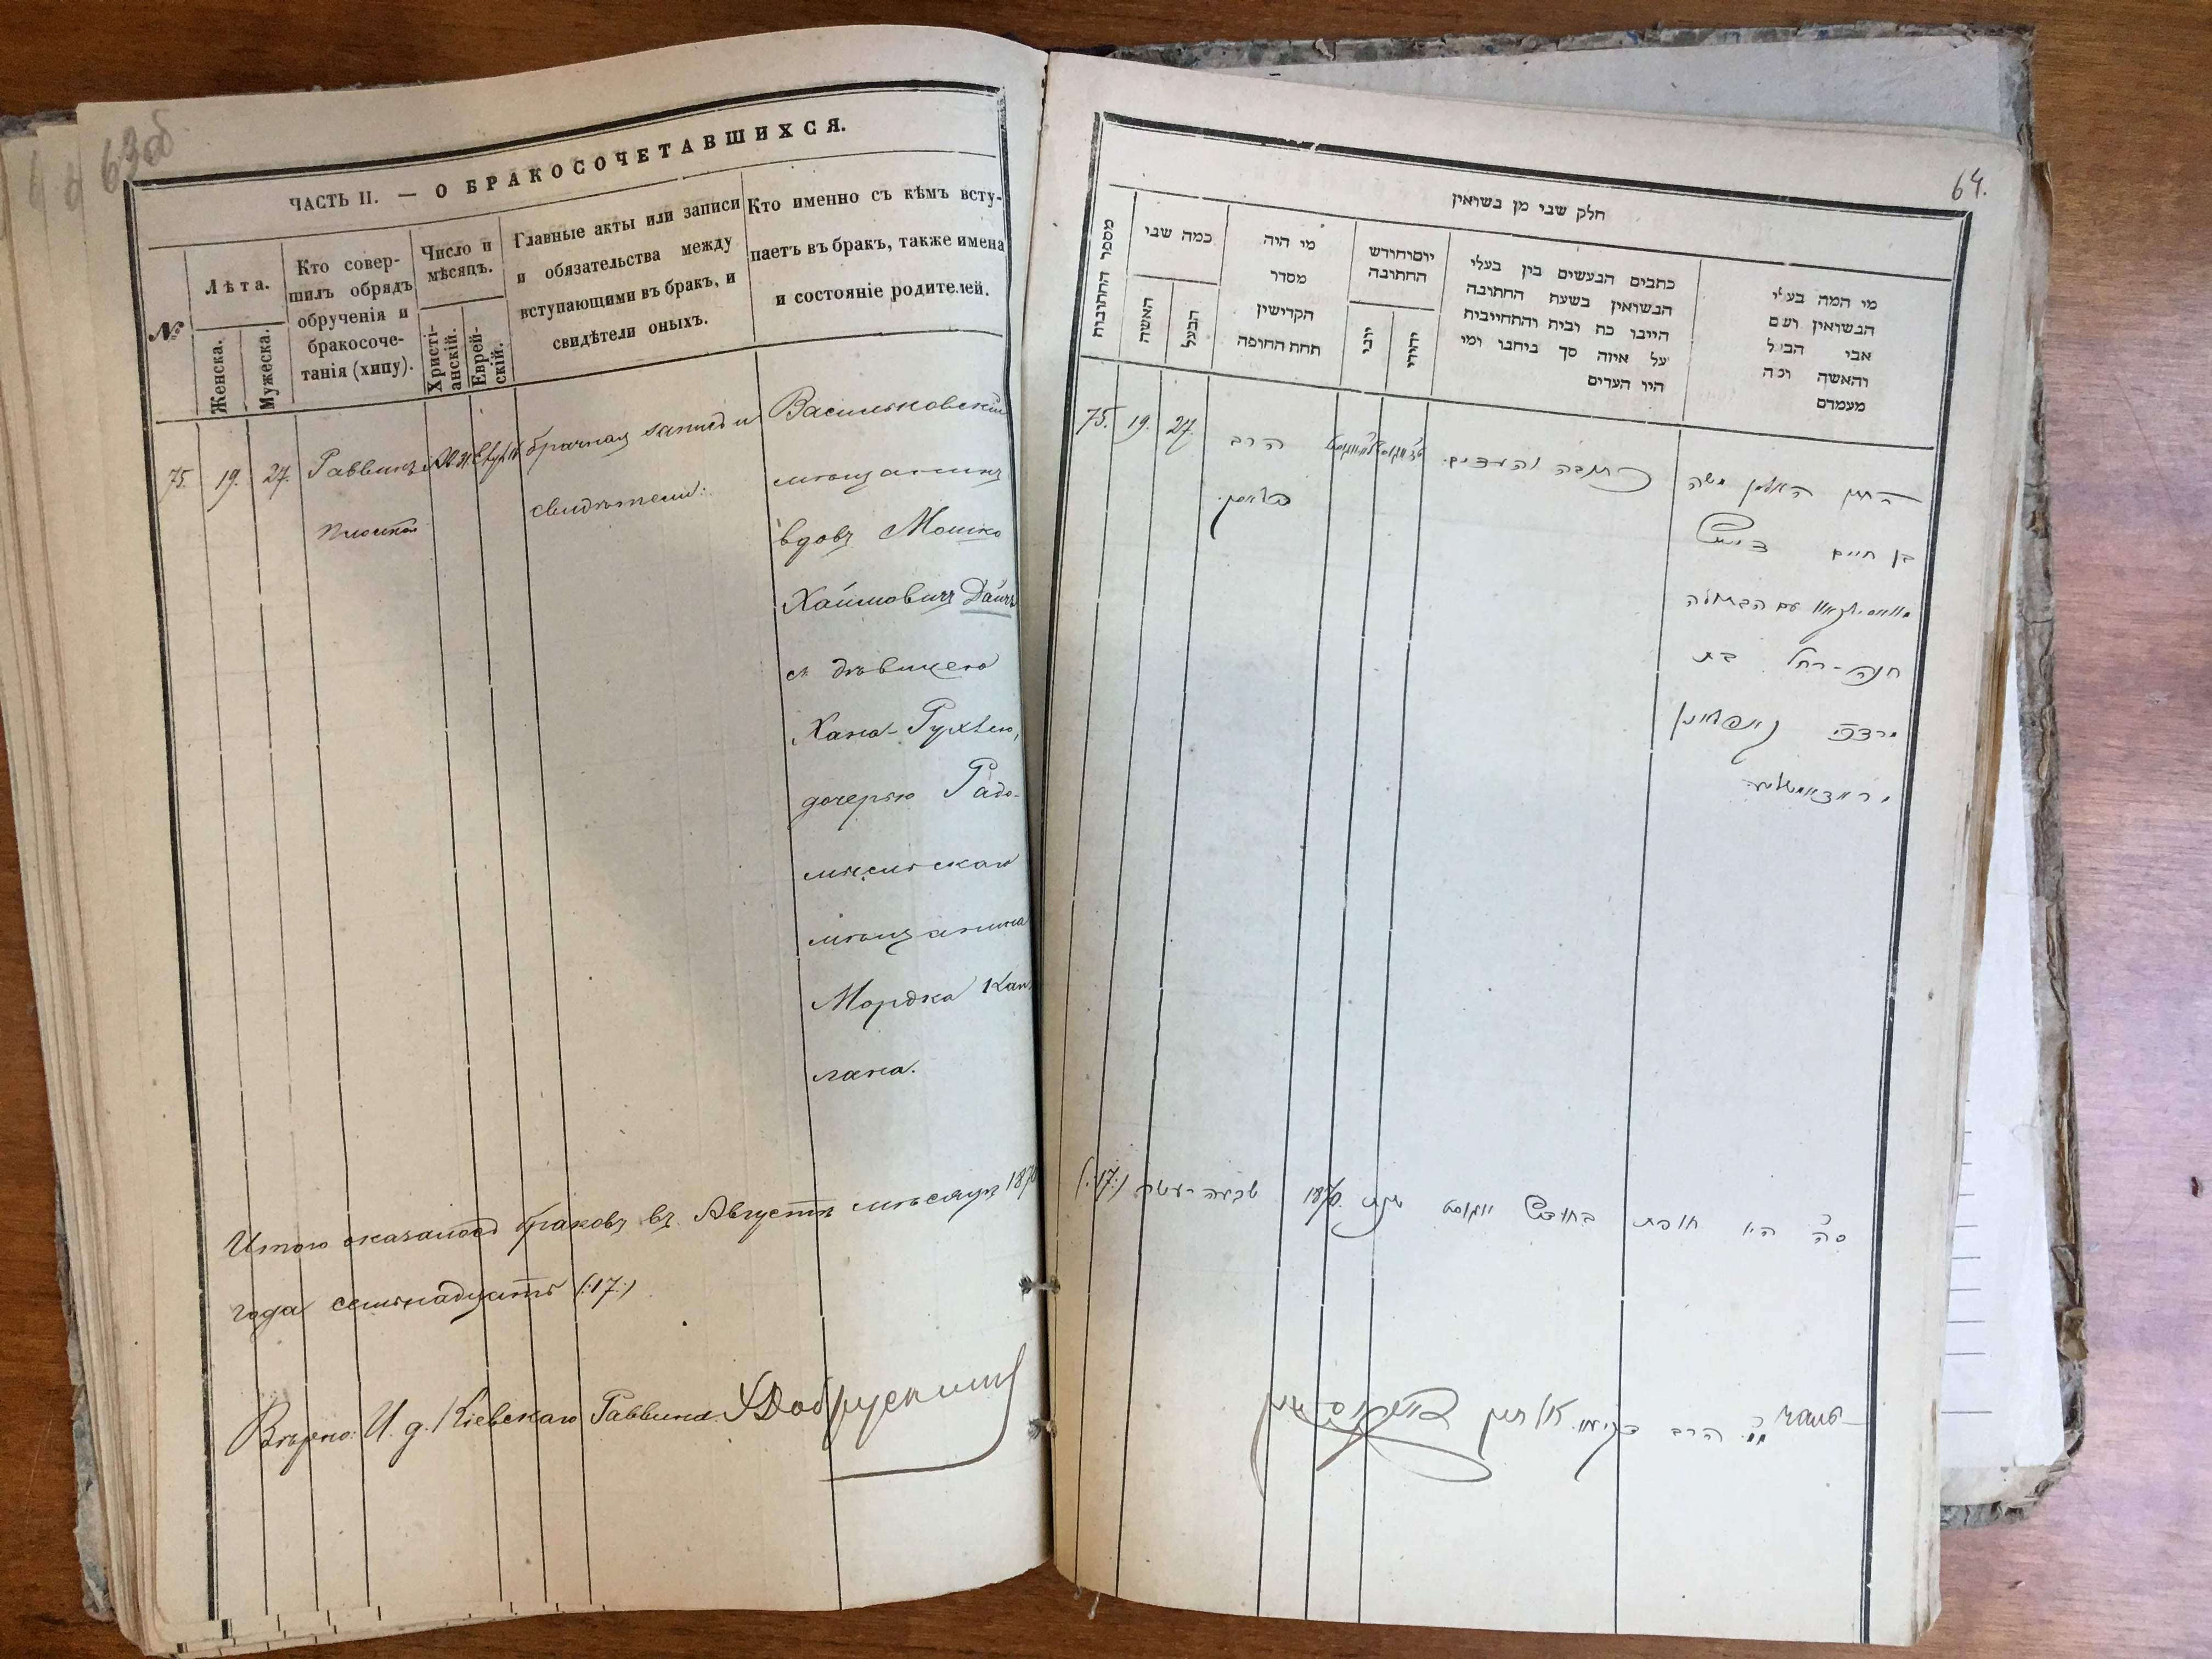 63об
ЧАСТЬ II. — О БРАКОСОЧЕТАВШИХСЯ.
№
Лѣта.
Женска.
Мужеска.
Кто совер-
шилъ обрядъ
обрученія и
бракосоче-
танія (хипу).
Число и
мѣсяцъ.
Христі-
анскій.
Еврей-
скій.
Главные акты или записи
и обязательства между
вступающими въ бракъ, и
свидѣтели оныхъ.
Кто именно съ кѣмъ всту-
паетъ въ бракъ, также имена
и состояніе родителей.
75.
19.
27.
Раввинъ
брачная запись и
свидѣтели:
Васильковскій
мѣщанинъ
вдовъ Мошко
Хаимовичъ Дайчъ
съ дѣвицею
Хана-Рухлею,
дочерью Радо-
мысльскаго
мѣщанина
Мордка Кап-
лана.
Итого оказалось браковъ въ Августѣ мѣсяцѣ 1870
года семьнадцать (:17:)
Вѣрно: И. д. Кіевскаго Раввина
64.
חלק שני מן נשואין
מספר החתונות
כמה שני
האשה
הבעל
מי היה
מסדר
הקדישין
תחת החופה
יום וחודש
החתונה
יוני
יהודי
כתבים הנעשים בין בעלי
הנשואין בשעת החתונה
היינו כח ובית והתחייבית
על איזה סך ניתנו ומי
היו העדים
מי המה בעלי
הנשואין ועם
אבי הבעל
והאשה ומה
מעמדם
75.
19.
27.
הרב
כתובה והעדים
החתן האלמן משה
בן חיים דייטש
עם הבתולה
חנה-רחל בת
מרדכי קאפלאן
ס״ה היו חופות בחודש אווגוסט שנת 1870 שבעה-עשר (:17:)